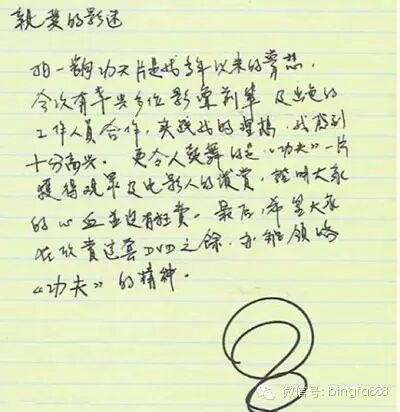 親愛的影迷
拍一齣功夫片是我多年以来的夢想,
今次有幸與多位影壇前輩及出色的
工作人員合作,實踐我的理想,我感到
十分高兴。更令人鼓舞的是,《功夫》一片
獲得观眾及电影人的讚賞,證明大家
的心血並沒有枉費。最后,希望大家
在欣賞這套DVD之餘,亦能領略
《功夫》的精神。
微信号: bingfa888